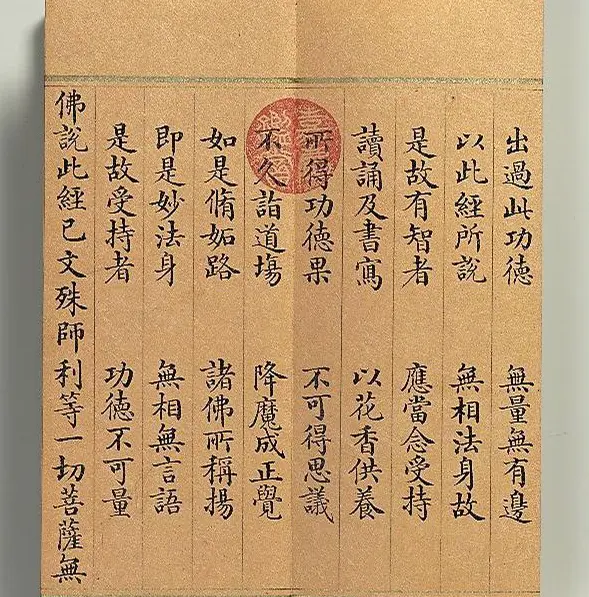 出過此功德 無量無有邊
以此經所說 無相法身故
是故有智者 應當念受持
讀誦及書寫 以花香供養
所得功德果 不可得思議
不久詣道場 降魔成正覺
如是脩妬路 諸佛所稱揚
即是妙法身 無相無言語
是故受持者 功德不可量
佛說此經已文殊師利等一切菩薩無